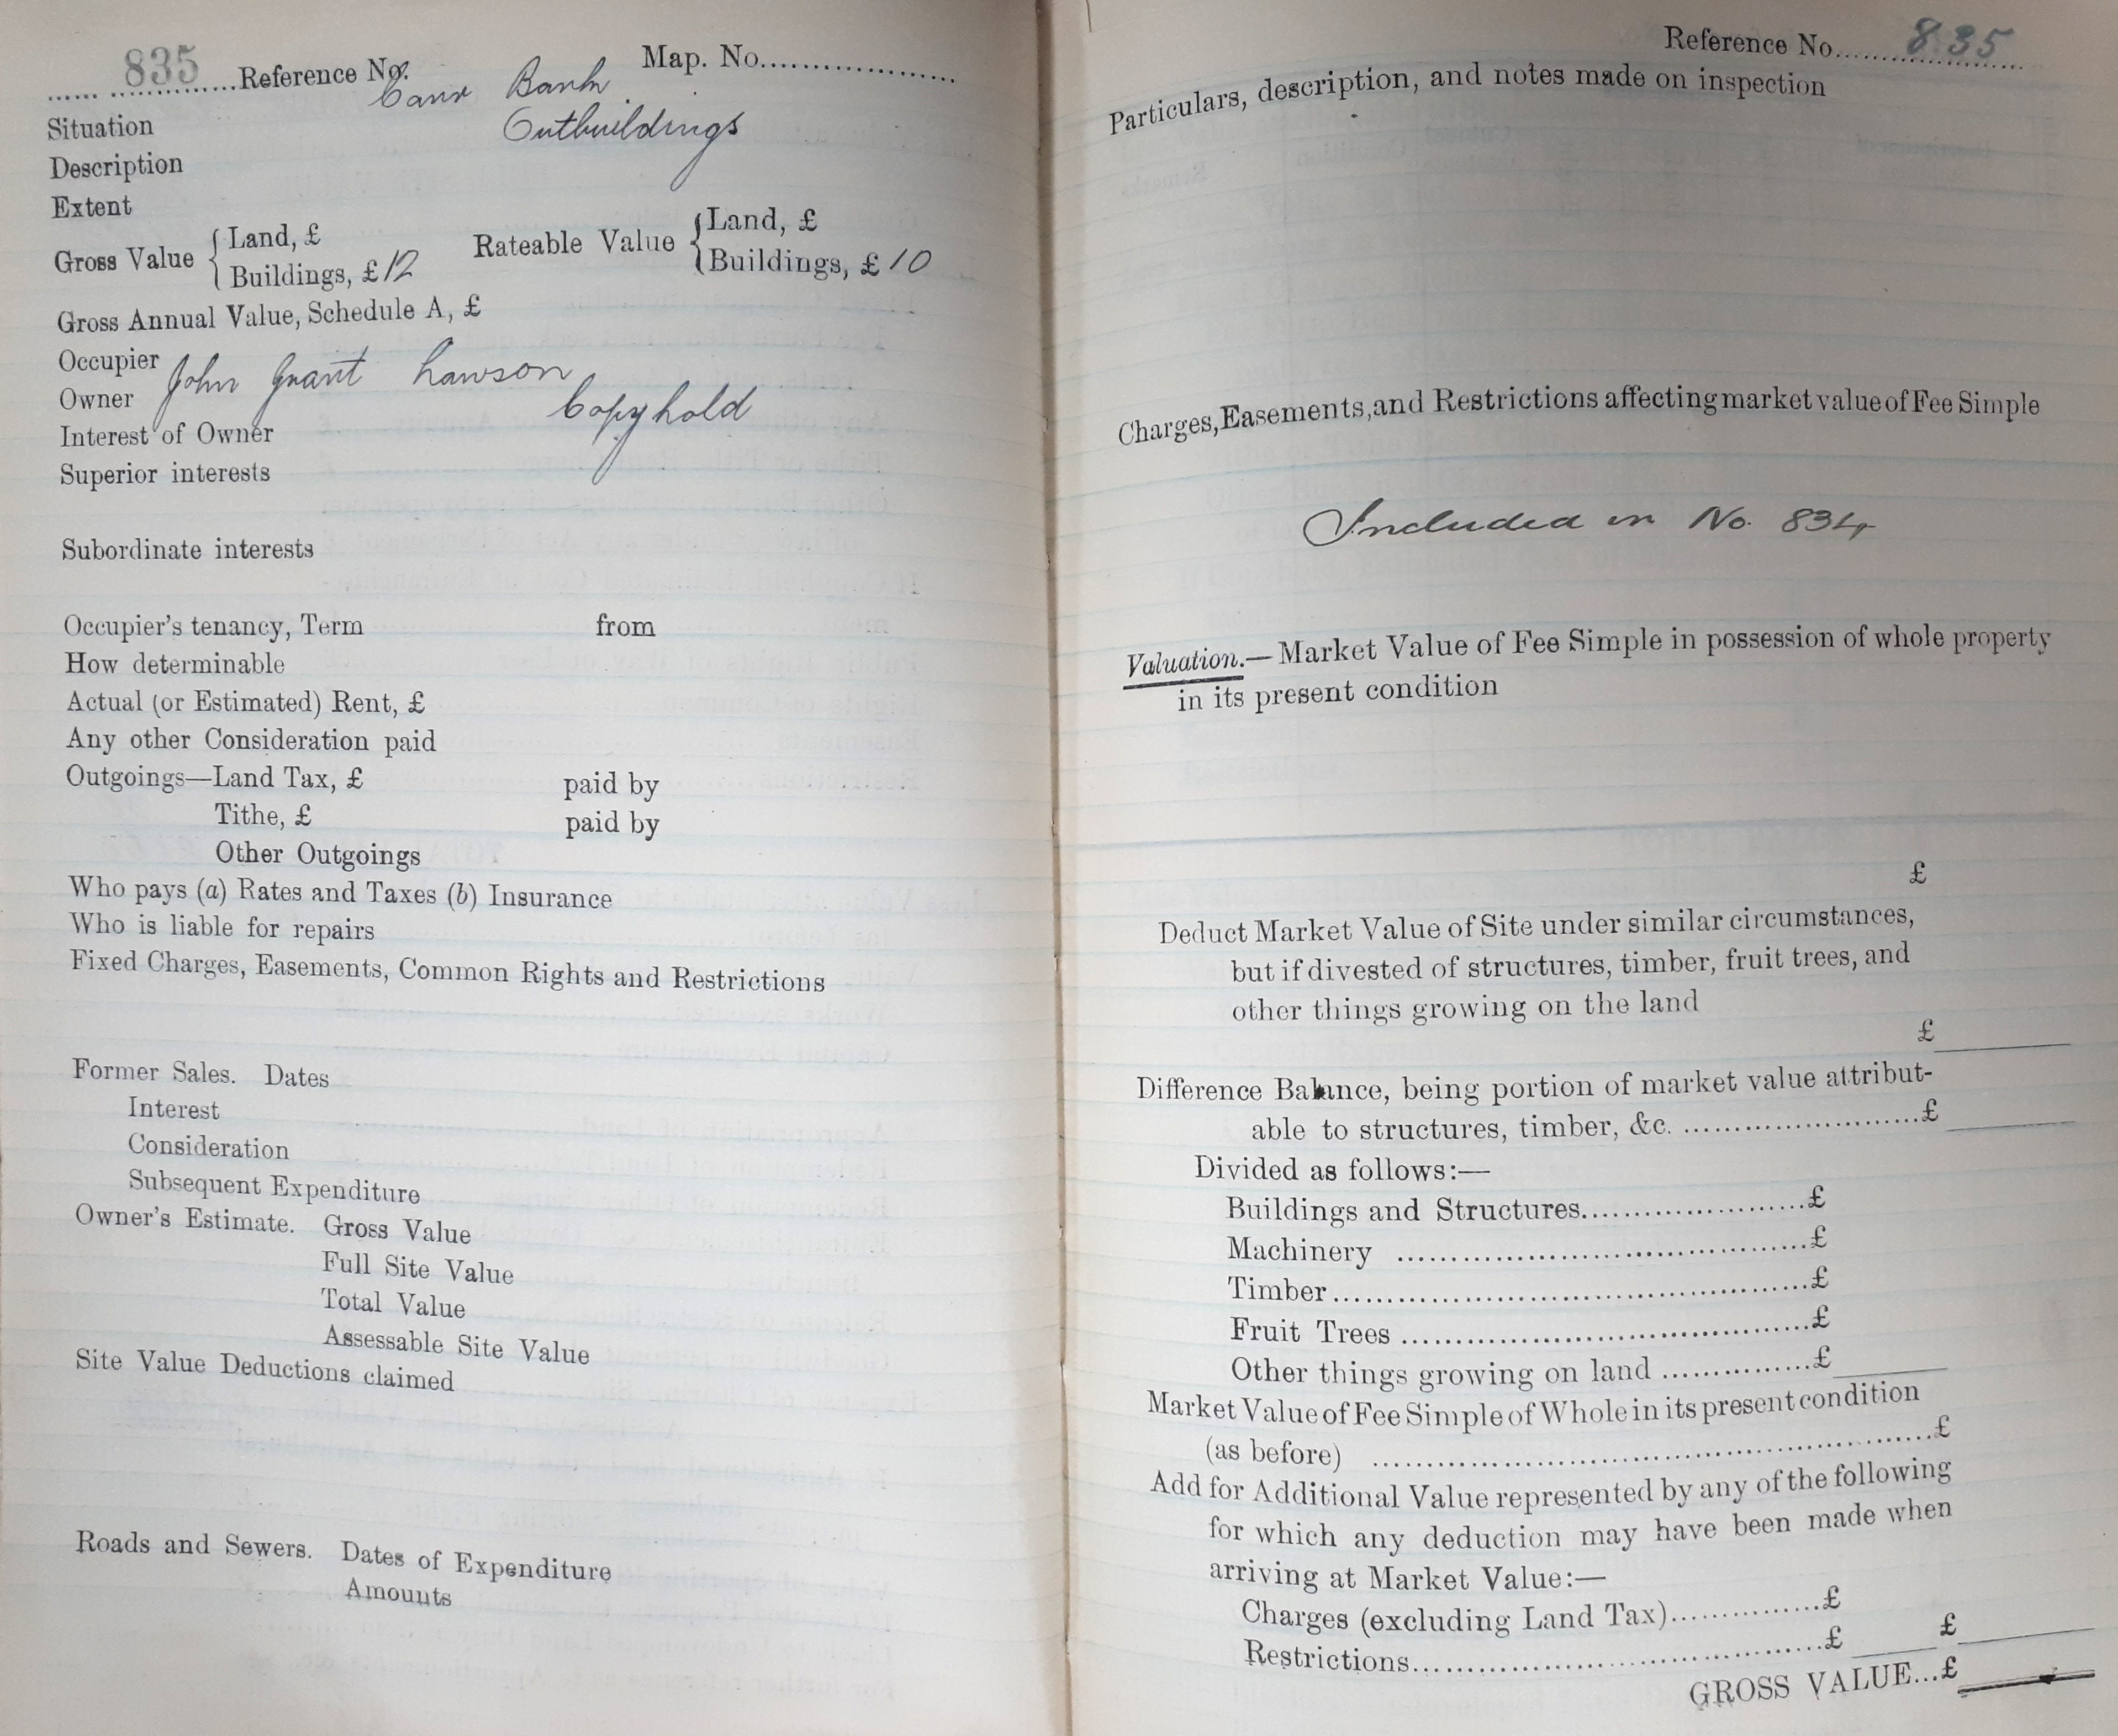 835 Reference No. Map. No.
Carr Bank
Situation
Outbuildings
Description
Extent
Gross Value { Land, £ Rateable Value { Land, £
Buildings, £ 12 Buildings, £ 10
Gross Annual Value, Schedule A, £
Occupier
John Grant Lawson
Owner
Copyhold
Interest of Owner
Superior interests
Subordinate interests
Occupier's tenancy, Term from
How determinable
Actual (or Estimated) Rent, £
Any other Consideration paid
Outgoings—Land Tax, £ paid by
Tithe, £ paid by
Other Outgoings
Who pays (a) Rates and Taxes (b) Insurance
Who is liable for repairs
Fixed Charges, Easements, Common Rights and Restrictions
Former Sales. Dates
Interest
Consideration
Subsequent Expenditure
Owner's Estimate. Gross Value
Full Site Value
Total Value
Assessable Site Value
Site Value Deductions claimed
Roads and Sewers. Dates of Expenditure
Amounts
Reference No. 835
Particulars, description, and notes made on inspection
Charges, Easements, and Restrictions affecting market value of Fee Simple
Included in No. 834
Valuation.—Market Value of Fee Simple in possession of whole property
in its present condition
£
Deduct Market Value of Site under similar circumstances,
but if divested of structures, timber, fruit trees, and
other things growing on the land
£
Difference Balance, being portion of market value attribut-
able to structures, timber, &c. £
Divided as follows:—
Buildings and Structures £
Machinery £
Timber £
Fruit Trees £
Other things growing on land £
Market Value of Fee Simple of Whole in its present condition
(as before) £
Add for Additional Value represented by any of the following
for which any deduction may have been made when
arriving at Market Value:—
Charges (excluding Land Tax) £
Restrictions £ £
GROSS VALUE...£